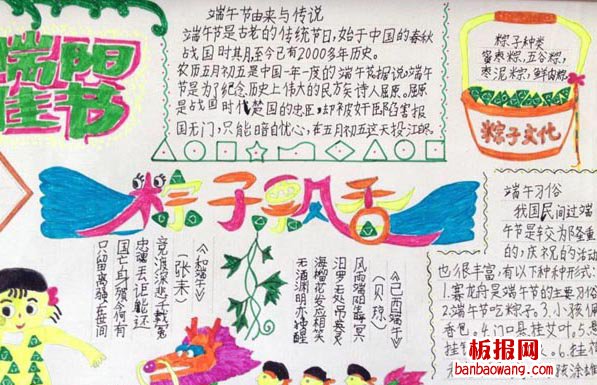 端阳
佳节
端午节由来与传说
端午节是古老的传统节日,始于中国的春秋
战国时其月,至今已有2000多年历史。
农历五月初五是中国一年一度的端午节,据说端午
节是为了纪念历史上伟大的民族诗人屈原。屈原
是战国时代楚国的忠臣,却被奸臣陷害报
国无门,只能暗自忧心,在五月初五这天投江的
粽子种类
蜜枣粽,五谷粽,
枣泥粽,鲜肉粽
粽子文化
粽子飘香
《和端午》
(张耒)
竞渡深悲千载冤
忠魂去讵能还
国亡身殒今何有
只留离骚在世间
《已酉端午》
(贝琼)
风雨端阳生晦冥
汨罗无处吊英灵
海榴花发应相笑
无酒渊明亦独醒
端午习俗
我国民间过端
午节是较为隆重
的,庆祝的活动
也很丰富,有以下种种形式:
1.赛龙舟是端午节的主要习俗
2.端午节吃粽子。3.小孩佩
香包。4.门口悬挂艾叶。5.悬
挂钟
6.挂荷
孩涂雄
板报网
banbaowang.com